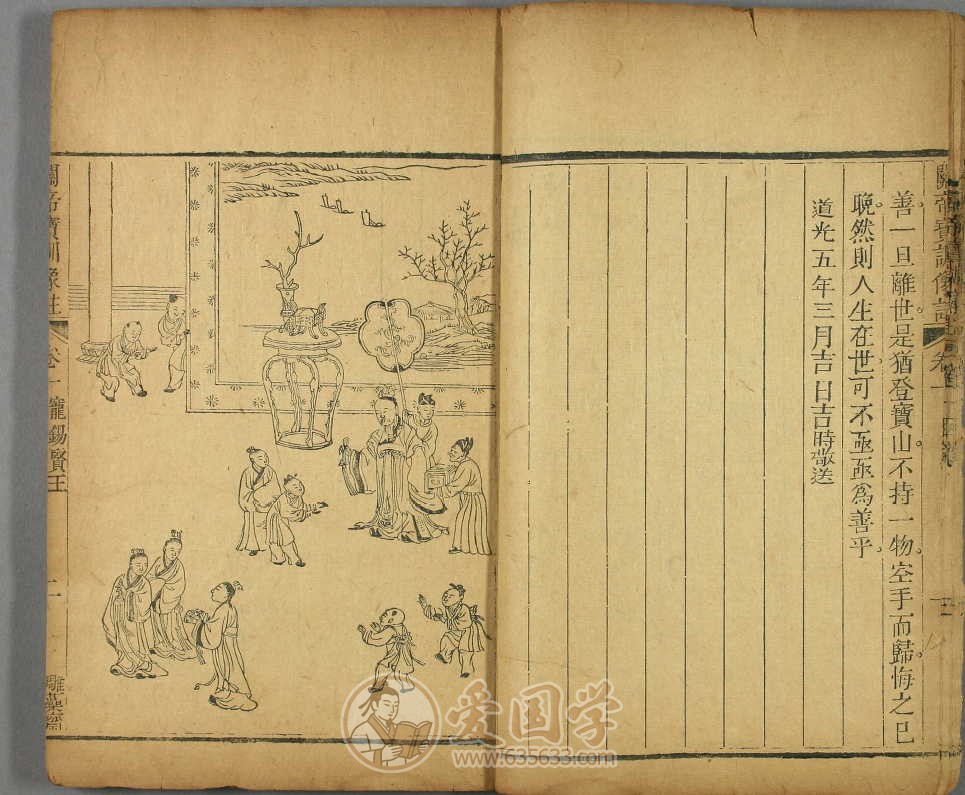 善一旦離世是猶登寶山不持一物空手而歸悔之已
晚然則人生在世可不亟亟為善乎
道光五年三月吉日吉時敬送
關帝寶訓像註
卷一
寵錫賢王
一
愛国学
www.635633.com